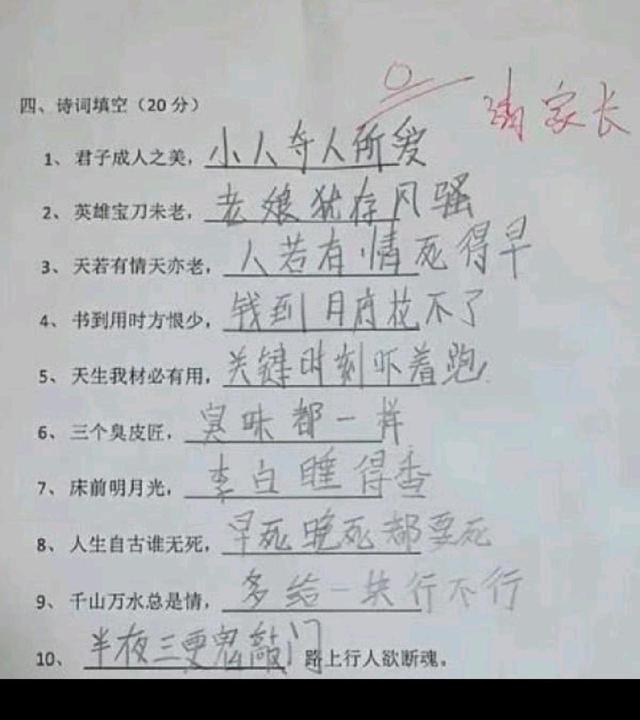 四、诗词填空（20 分） 0 请家长
1、君子成人之美，小人夺人所爱
2、英雄宝刀未老，老娘犹存风骚
3、天若有情天亦老，人若有情死得早
4、书到用时方恨少，钱到月底花不了
5、天生我材必有用，关键时刻吓着跑
6、三个臭皮匠，臭味都一样
7、床前明月光，李白睡得香
8、人生自古谁无死，早死晚死都要死
9、千山万水总是情，多给一块行不行
10、半夜三更鬼敲门 路上行人欲断魂。